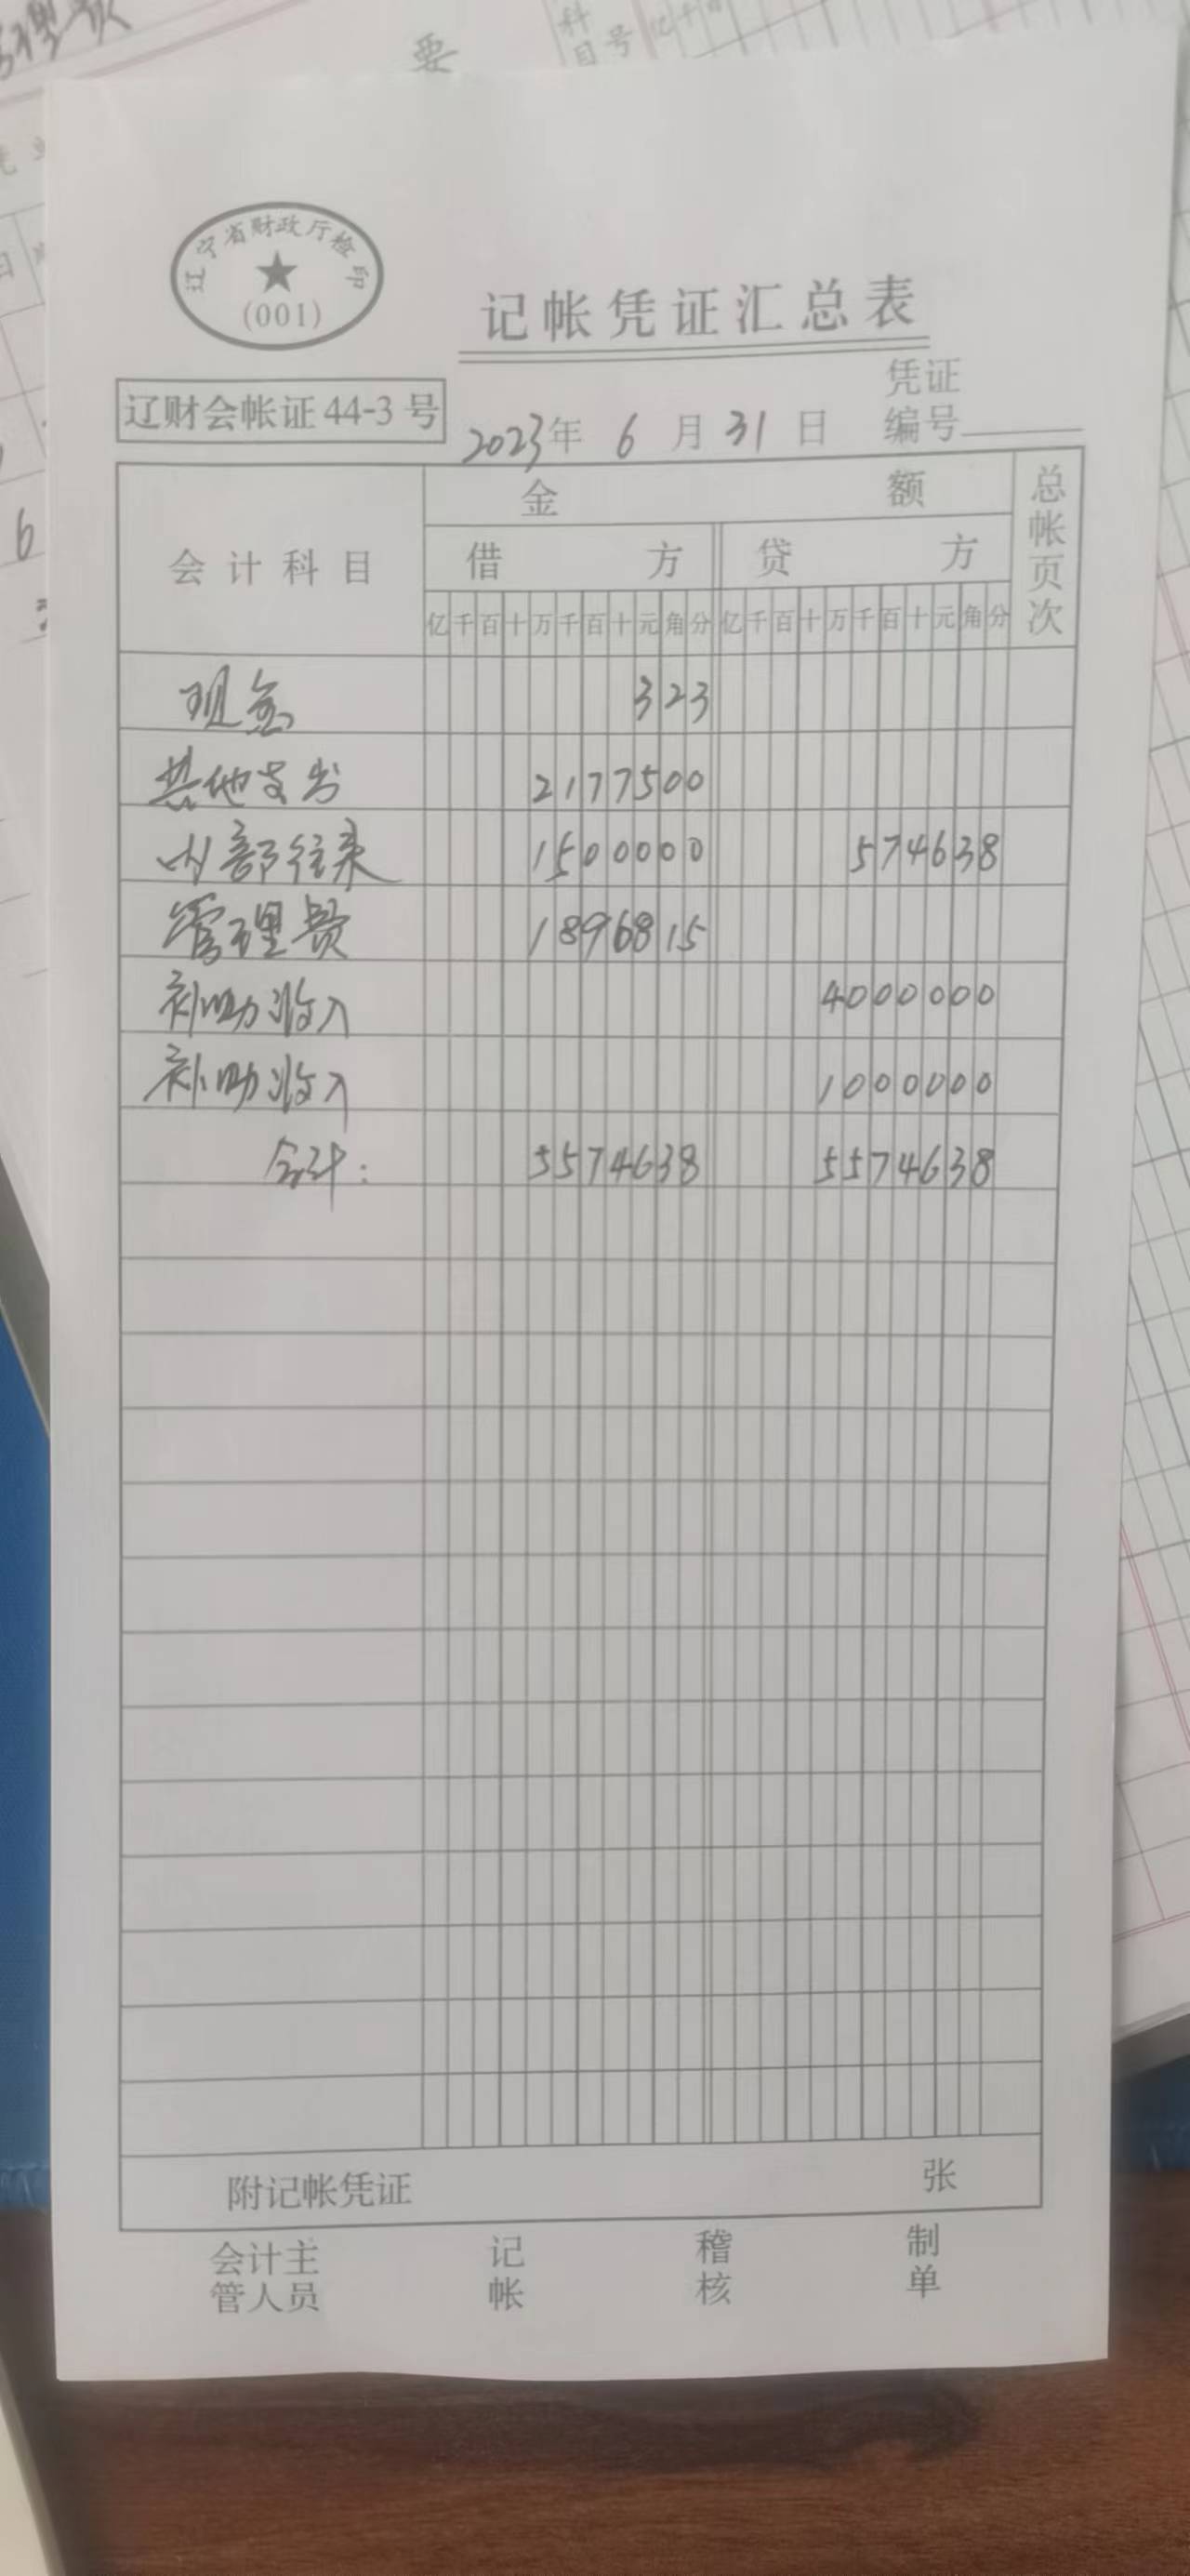 要
科目号
亿千百
辽宁省财政厅检印
(001)
记帐凭证汇总表
辽财会帐证44-3号
2023年 6月31日
凭证编号
会计科目 金额 总帐页次
借方 贷方
亿千百十万千百十元角分 亿千百十万千百十元角分
现金 323
其他支出 2177500
内部往来 1500000 574638
管理费 1896815
补助收入 4000000
补助收入 1000000
合计: 5574638 5574638
附记帐凭证 张
会计主管人员 记帐 稽核 制单